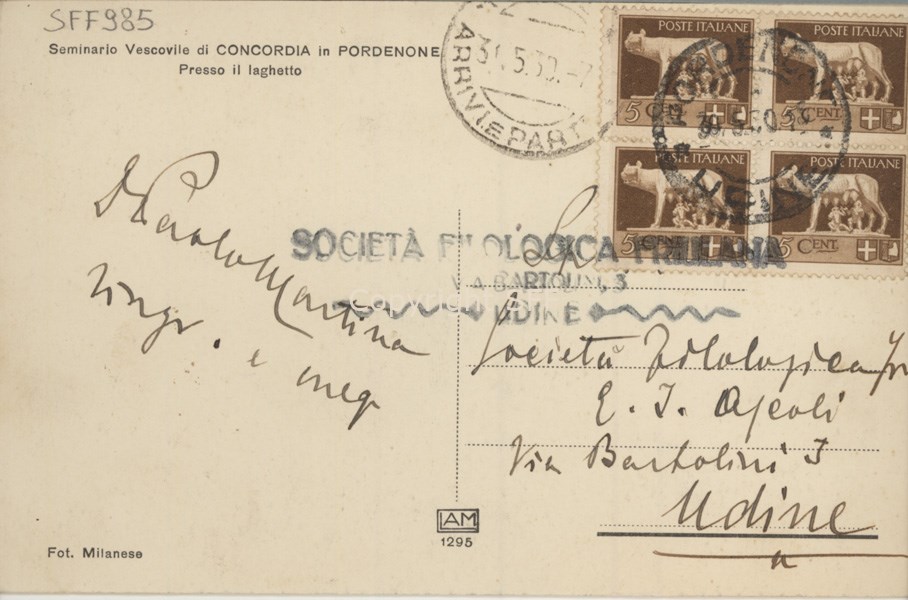 SFF985
Seminario Vescovile di CONCORDIA in PORDENONE
Presso il laghetto
ARRIVI E PART
31.5.30.-7
POSTE ITALIANE
5 CENT
POSTE ITALIANE
5 CENT.
POSTE ITALIANE
5 CENT.
POSTE ITALIANE
5 CENT.
PORDENONE
UDINE
D Paolo Martina
ringr. e
SOCIETÀ FILOLOGICA FRIULANA
VIA BARTOLINI, 3
UDINE
Società Filologica Fr
G. I. Ascoli
Via Bartolini 3
Udine
IAM
1295
Fot. Milanese